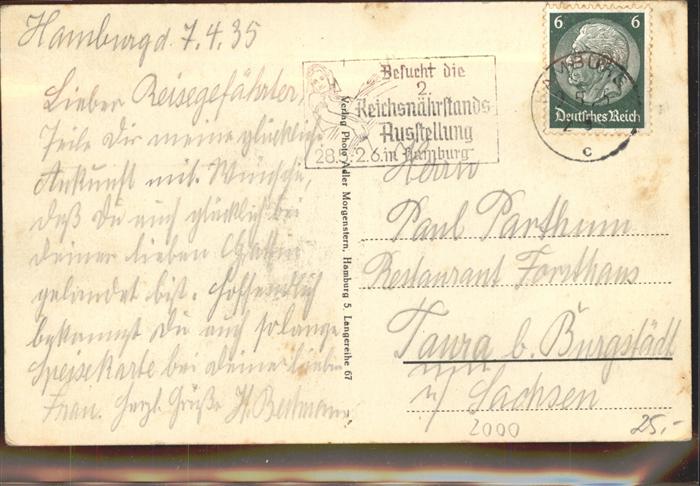 Hamburg d. 7.4.35
Lieber Reisegefährter,
Teile Dir meine glückliche
Ankunft mit. Wünsche,
daß Du auch glücklich bei
deiner lieben Gattin
gelandet bist. Hoffentlich
bekommst Du auch solange
Speisekarte bei deiner lieben
Frau. Herzl. Grüße H. Beckmann
Verlag Photo Adler Morgenstern, Hamburg 5, Langereihe 67
Besucht die
2.
Reichsnährstands
Ausstellung
28.5.-2.6. in Hamburg
6 6
Deutsches Reich
HAMBURG
c
Herrn
Paul Parthum
Restaurant Forsthaus
Taura b. Burgstädt
i/ Sachsen
2000
25,-